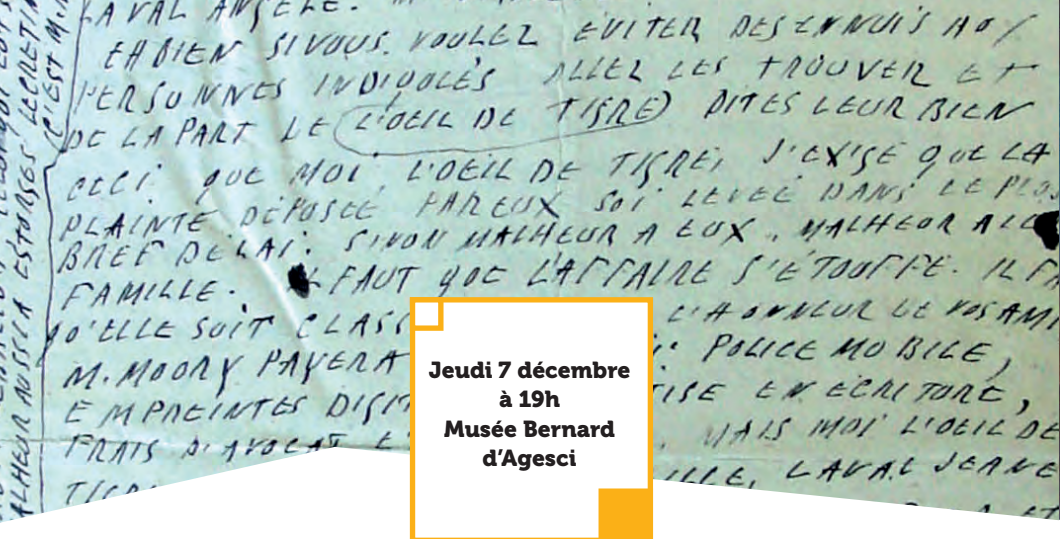 LAVAL ANGELE.
EH BIEN SI VOUS. VOULEZ EVITER DES ENNUIS AUX
PERSONNES INDIQUÉES ALLEZ LES TROUVER ET
DE LA PART LE L'OEIL DE TIGRE) DITES LEUR BIEN
CECI QUE MOI, L'OEIL DE TIGRE, J'EXIGE QUE LA
PLAINTE DÉPOSÉE PAR EUX SOI LEVEE DANS LE PLUS
BREF DÉLAI. SINON MALHEUR A EUX, MALHEUR A
FAMILLE. IL FAUT QUE L'AFFAIRE S'ÉTOUFFE. IL
QU'ELLE SOIT L'HONNEUR DE VOS
M. MOORY PAYERA POLICE MOBILE,
EMPREINTES EN ECRITURE,
FRAIS D'AVOCAT MAIS MOI L'OEIL DE
LAVAL JEANE
MALHEUR AUSSI A ESTORGES
C'EST
Jeudi 7 décembre
à 19h
Musée Bernard
d'Agesci